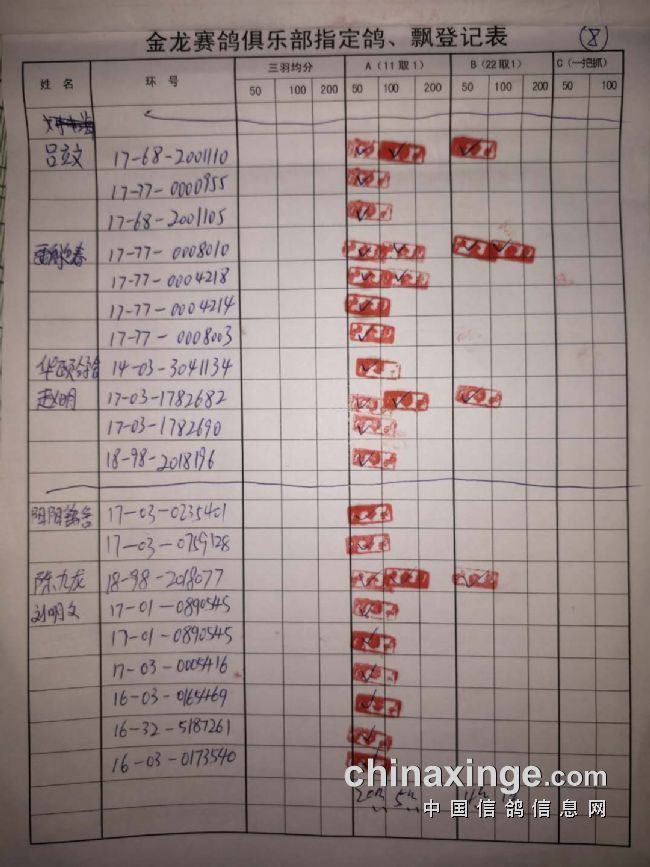 金龙赛鸽俱乐部指定鸽、飘登记表 (8)
姓名 环号 三羽均分 A(11取1) B(22取1) C(一把抓)
50 100 200 50 100 200 50 100 200 50 100
吕立文 17-68-2001110
17-77-0000955
17-68-2001105
17-77-0008010
17-77-0004218
17-77-0004214
17-77-0008003
14-03-3041134
赵明 17-03-1782682
17-03-1782690
18-98-2018196
阳阳鸽舍 17-03-0235401
17-03-0759128
陈九龙 18-98-2018077
刘明文 17-01-0890545
17-01-0890545
17-03-0005416
16-03-0165469
16-32-5187261
16-03-0173540
chinaxinge.com
中国信鸽信息网